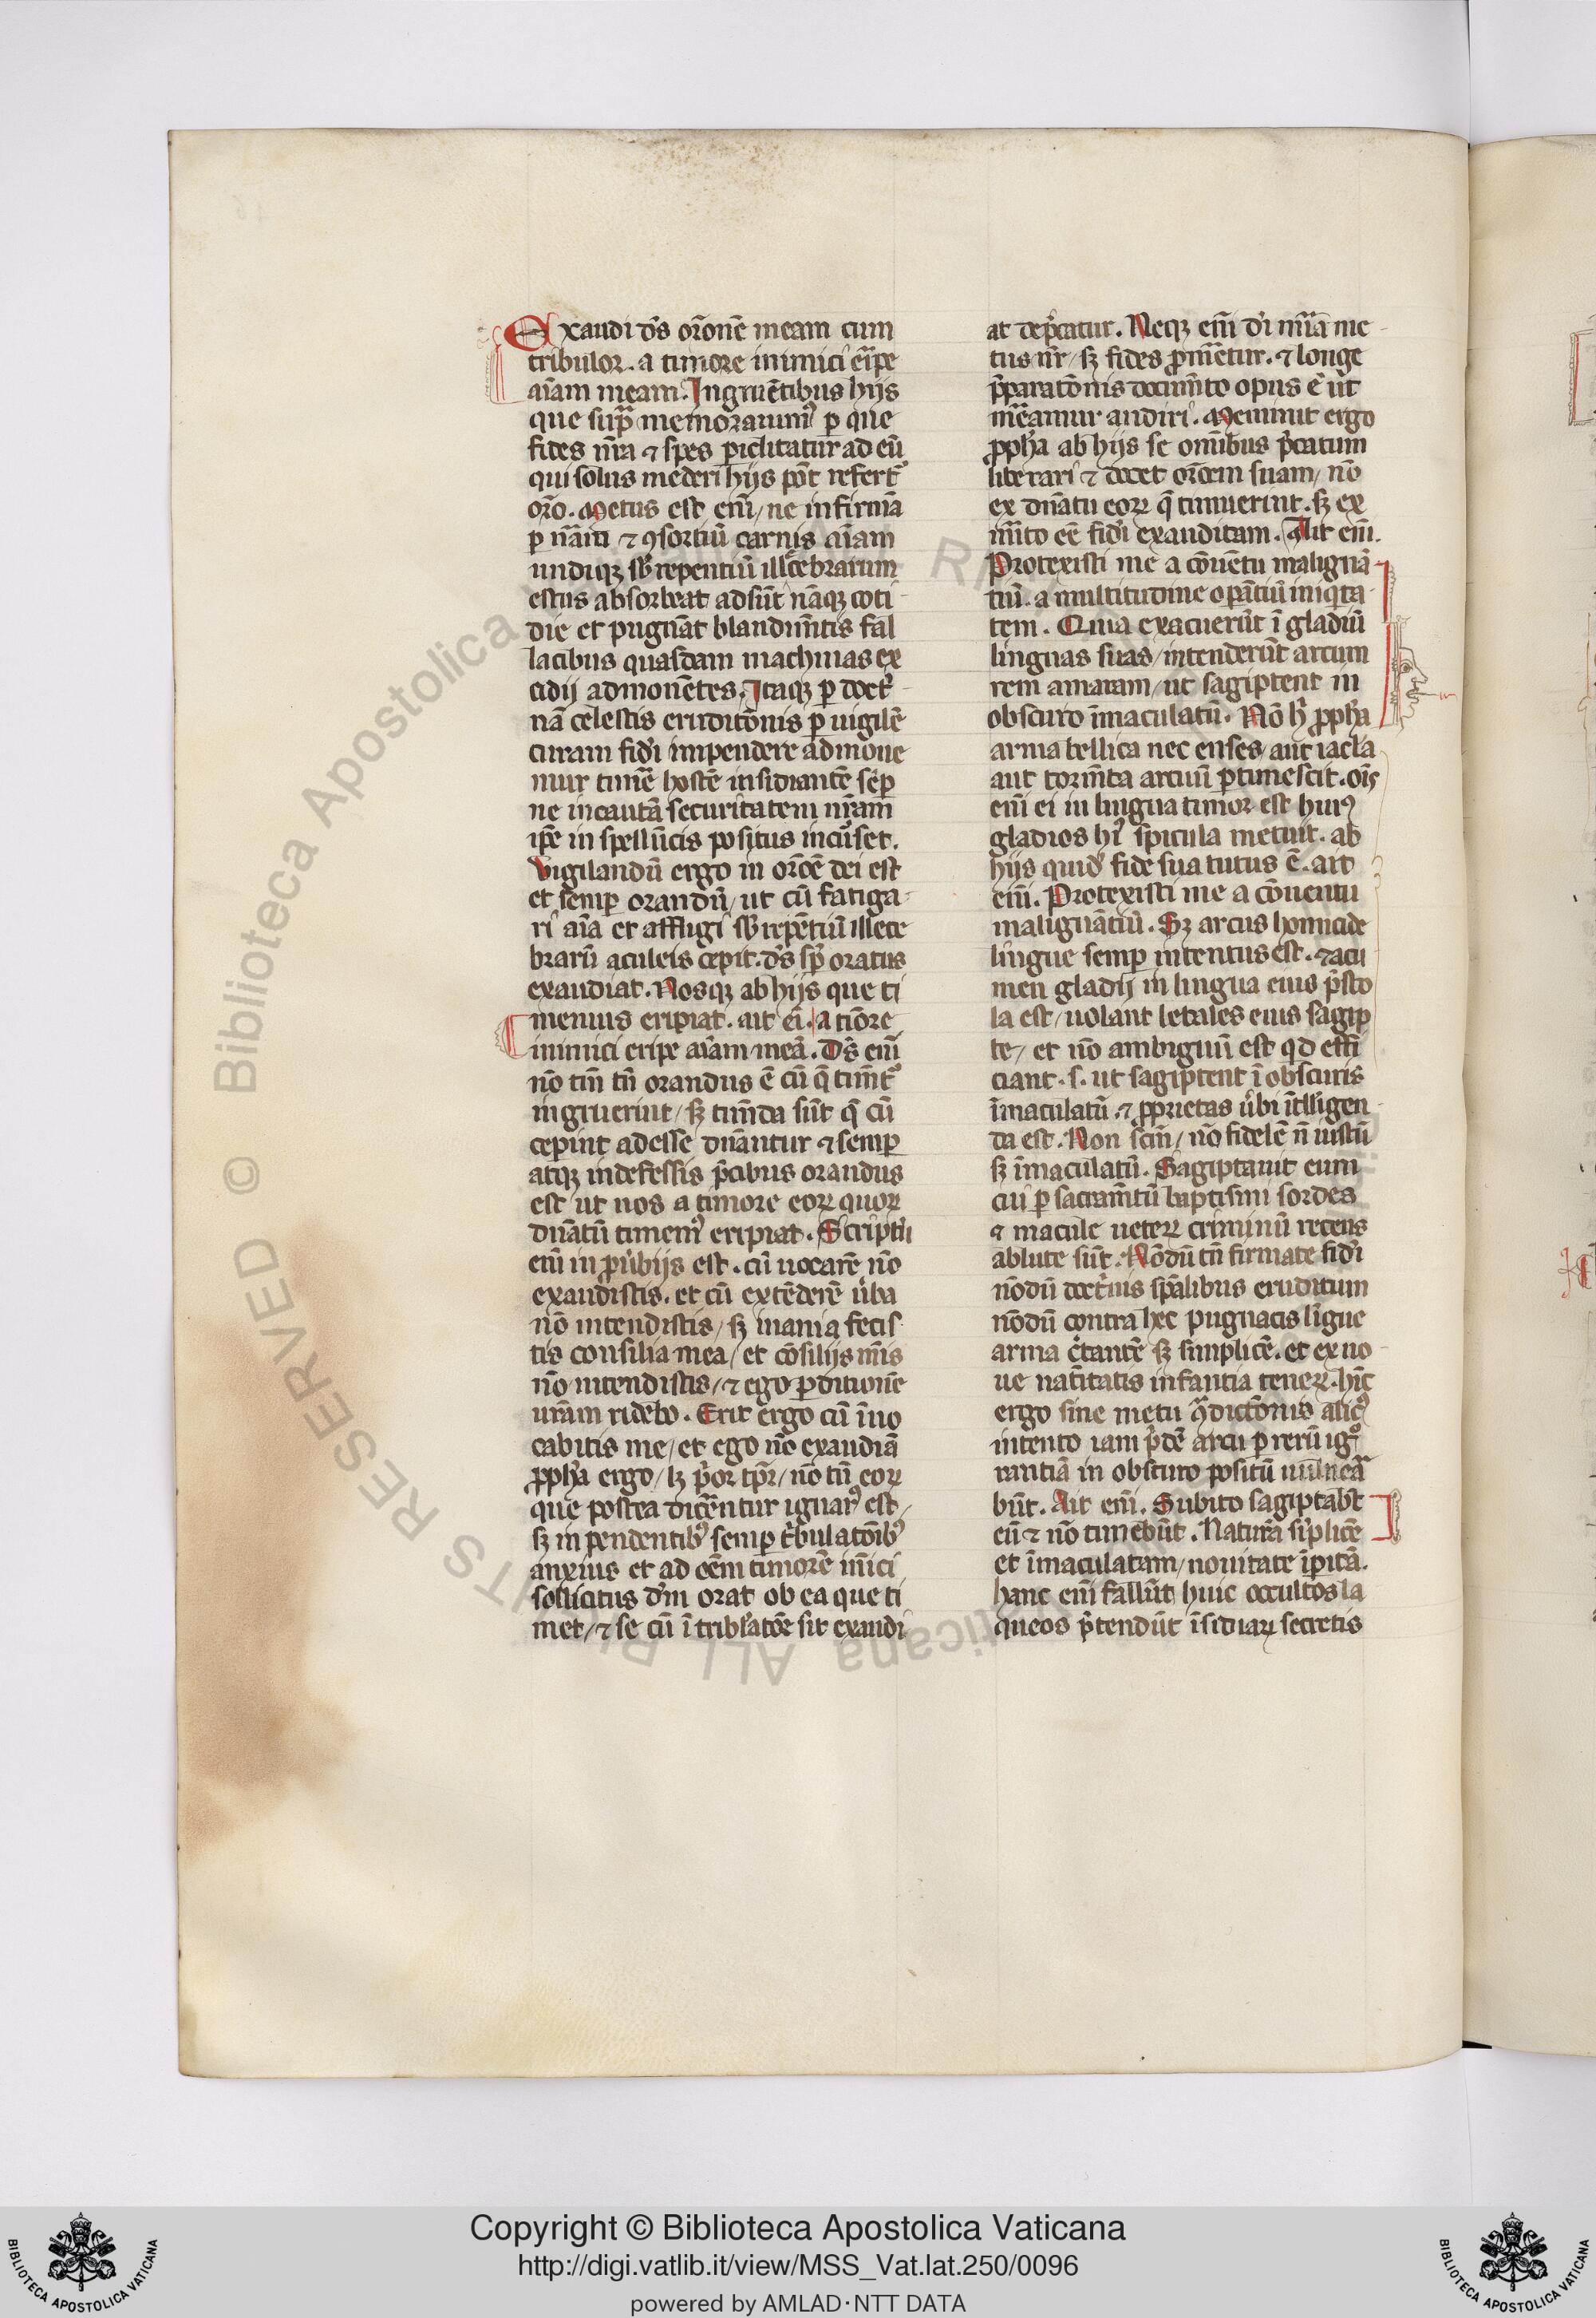 Exaudi d̄s or̄onē meam cum
tribulor. a timore inimici eripe
aīam meam. Ingruētibus hijs
que sup̄ memorauim⁹ p̱ que
fides nr̄a ⁊ spes p̱iclitatur ad eū
qui solus mederi hijs pōt refert᷑
or̄o. Metus est eni̅, ne infirma
p̱ nām ⁊ ꝯsortiū carnis aīam
undiqꝫ sb̄repentiū illecebrarum
estus absorbeat adsūt nāqꝫ coti
die et pugnāt blandim̄tis fal
lacibus quasdam machinas ex
cidij admonētes. Itaqꝫ p̱ doct'
nā celestis eruditōnis p̱uigilē
curam fid'i impendere admone
mur timē hostē insidiantē sēp̱
ne incautā securitatem nr̄am
ip̄e in spelūcis positus incūset.
Vigilandū ergo in or̄oē dei est
et semp̱ orandū, ut cū fatiga
ri aīa et affligi sb̄repētiū illece
brarū aculeis cepit. d̄s sp̱ oratus
exaudiat. Nosqꝫ ab hijs que ti
memus eripiat. ait ei̅. a tiōre
inimici eripe aīam meā. D̄s eni̅
nō tm̄ tū orandus ē cū q̄ timēt᷑
ingruerint, sꝫ timēda sūt q̄ cū
cepint adesse dn̄antur ⁊ semp̱
atqꝫ indefessis p̄cibus orandus
est ut nos a timore eoꝝ quoꝝ
dn̄atū timem⁹ eripiat. Script'
eni̅ in p̱ubijs est. cū uocarē nō
exaudistis. et cū extēderē ūba
nō intendistis, sꝫ inania fecis
tis consilia mea, et cōsilijs m̄is
nō intendistis, ⁊ ego p̱ditionē
ur̄am ridebo. Erit ergo cū īuo
cabitis me, et ego nō exaudiā
ꝓph̄a ergo, lꝫ p'or tp̄r, nō tū eoꝝ
que postea dicerentur ignar⁹ est,
sꝫ inpendentib⁹ semp̱ t'bulatōib⁹
anxius et ad oēm timorē inīci
sollicitus dm̄ orat ob ea que ti
met, ⁊ se cū ī tribl'atōe sit exaudi
at dep̄catur. Neqꝫ eni̅ d'i nimia me
tus nr̄, sꝫ fides ꝓmeretur. ⁊ longe
p̄paratōnis docim̄to opus ē ut
mereamur audiri. Meminit ergo
ꝓph̄a ab hijs se omībus p̄catum
liberari ⁊ docet or̄oem suam, nō
ex dn̄atu eoꝝ q̄ timuerint. sꝫ ex
m̄ito eē fid'i exauditam. Ait eni̅.
Protexisti me a cōuētu malignā
tiū. a multitudine op̱ātiū iniq'ta
tem. Quia exacuerūt ī gladiū
linguas suas, intenderūt arcum
rem amaram, ut sagiptent in
obscuro īmaculatū. Nō h' ꝓph̄a
arma bellica nec enses, aut iacl'a
aut torm̄ta arcuū p̱timescit. oīs
eni̅ ei in lingua timor est hui⁹
gladios hi⁹ spicula metuit. ab
hijs quid' fide sua tutus ē. ait
eni̅. Protexisti me a cōuentu
malignātiū. Sꝫ arcus homicide
lingue semp̱ intentus est. ⁊ acu
men gladij in lingua eius p̄sto
la est, uolant letales eius sagip
te, et nō ambiguū est qd effi
ciant. s. ut sagiptent ī obscuris
īmaculatū. ⁊ ꝓprietas ūbi ītlligen
da est. Non sc̄m, nō fidelē n̄ iustū
sꝫ īmaculatū. Sagiptauit eum
cui p̱ sacram̄tū baptismi sordes
⁊ macule ueteꝝ criminū recens
ablute sūt. Nōdū tn̄ firmate fid'i
nōdū doct'nis sp̄alibus eruditum
nōdū contra hec pugnacis ligue
arma c'tantē sꝫ simplicē. et ex no
ue natiuitatis infantia teneꝝ. hūc
ergo sine metu q̄dictōnis alic⁹
intento iam p'dē arcu p̱ rerū igͦ
rantiā in obscuro positū uulnera
būt. Ait eni̅. Subito sagiptabūt
eū ⁊ nō timebūt. Naturā sīplicē
et īmaculatam, nouitate īp̱itā.
hanc eni̅ fallūt huic occultos la
queos p̄tendūt īsidiaꝝ secretis
Copyright © Biblioteca Apostolica Vaticana
http://digi.vatlib.it/view/MSS_Vat.lat.250/0096
powered by AMLAD·NTT DATA
BIBLIOTECA APOSTOLICA VATICANA
BIBLIOTECA APOSTOLICA VATICANA